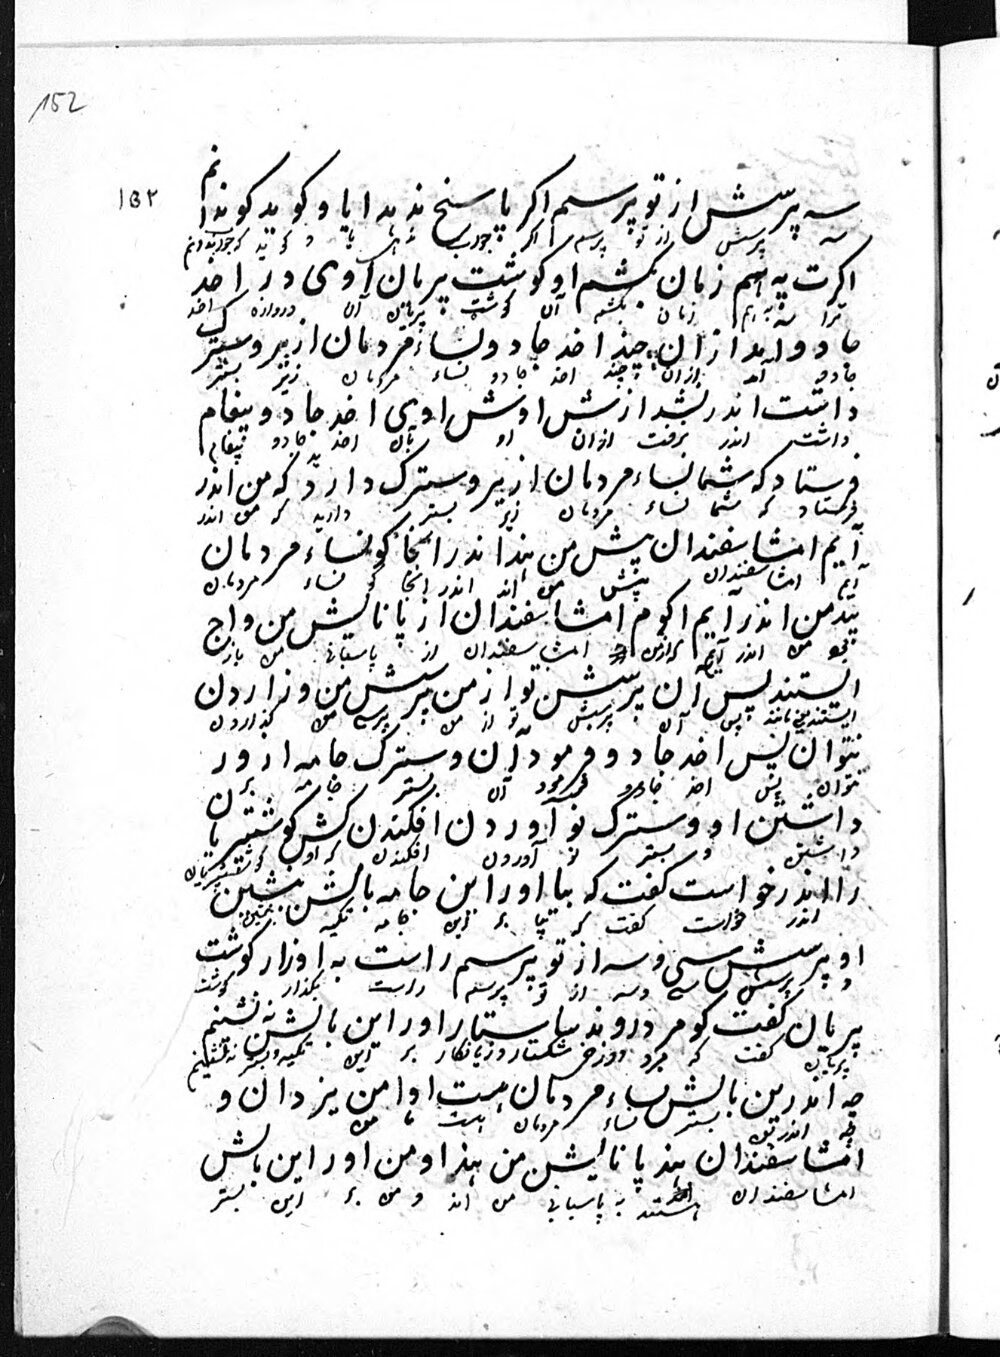 152
۱۵۲
سه پرسش از تو پرسم اکر پاسنخ ندهد ایا و کوید کوندانم
پرسش از تو پرسم اکر جواب نه دهی یا و کوید که جواب ندانم
اکرت په هم زمان بکشم او کوشت پریان آوی در اخذ
ترا به هم زمان بکشم آن کوشت پریان آن دروازه اخذ
جادو امد از ان چند اخذ جادو نساء مردمان ازیر وسترک
جادو آمد ازان چند اخذ جادو نساء مردمان زیر بستر
داشت اندر بشد ازش اوش اوی اخذ جادو پیغام
داشت اندر برفت ازان او بآن اخذ جادو پیغام
فرستاد که شما نساء مردمان ازیر وسترک دارد که من اندر
فرستاد که شما نساء مردمان زیر بستر دارید که من اندر
آیم امشاسفندان پیش من هند اندر انجا کو نساء مردمان
آیم امشاسفندان پیش من اند اندر انجا که نساء مردمان
بید من اندر آیم اکوم امشاسفندان از پانایش من واج
من اندر آیم امشاسفندان از پاسبانی من باز
ایستند پس آن پرسشن تو از من پرسش من وزاردن
ایستند پس آن پرسش تو از من پرسی من کذاردن
نتوان پس اخذ جادو فرمود آن وسترک جامه ازور
نتوان پس اخذ جادو فرمود آن بستر جامه بر
داشتن او وسترک نو آوردن افکندن کش کوشتپریان
داشتن و بستر نو آوردن افکندن که او کوشتپریان
را اندر خواست کفت که بیا اور این جامه بالشن نشین
اندر خواست کفت که بیا بر این جامه تکیه بنشین
او پرسش سی وسه از تو پرسم راست به اوزار کوشت
و پرسش سی وسه از تو پرسم راست بکذار کوشت
پریان کفت کو مرد دروند ساستار اور این بالشن نه نشینم
پریان کفت که مرد دوزخی ستمکار و زیانکار بر این تکیه و بستر نه نشینم
چه اندرین بالشن نساء مردمان هست اوا من یزدان و
چه اندرین بستر نساء مردمان هست با من
امشاسفندان هند پانایشن من هند او من اور این بالش
امشاسفندان هستند به پاسبانی من اند و من بر این بستر